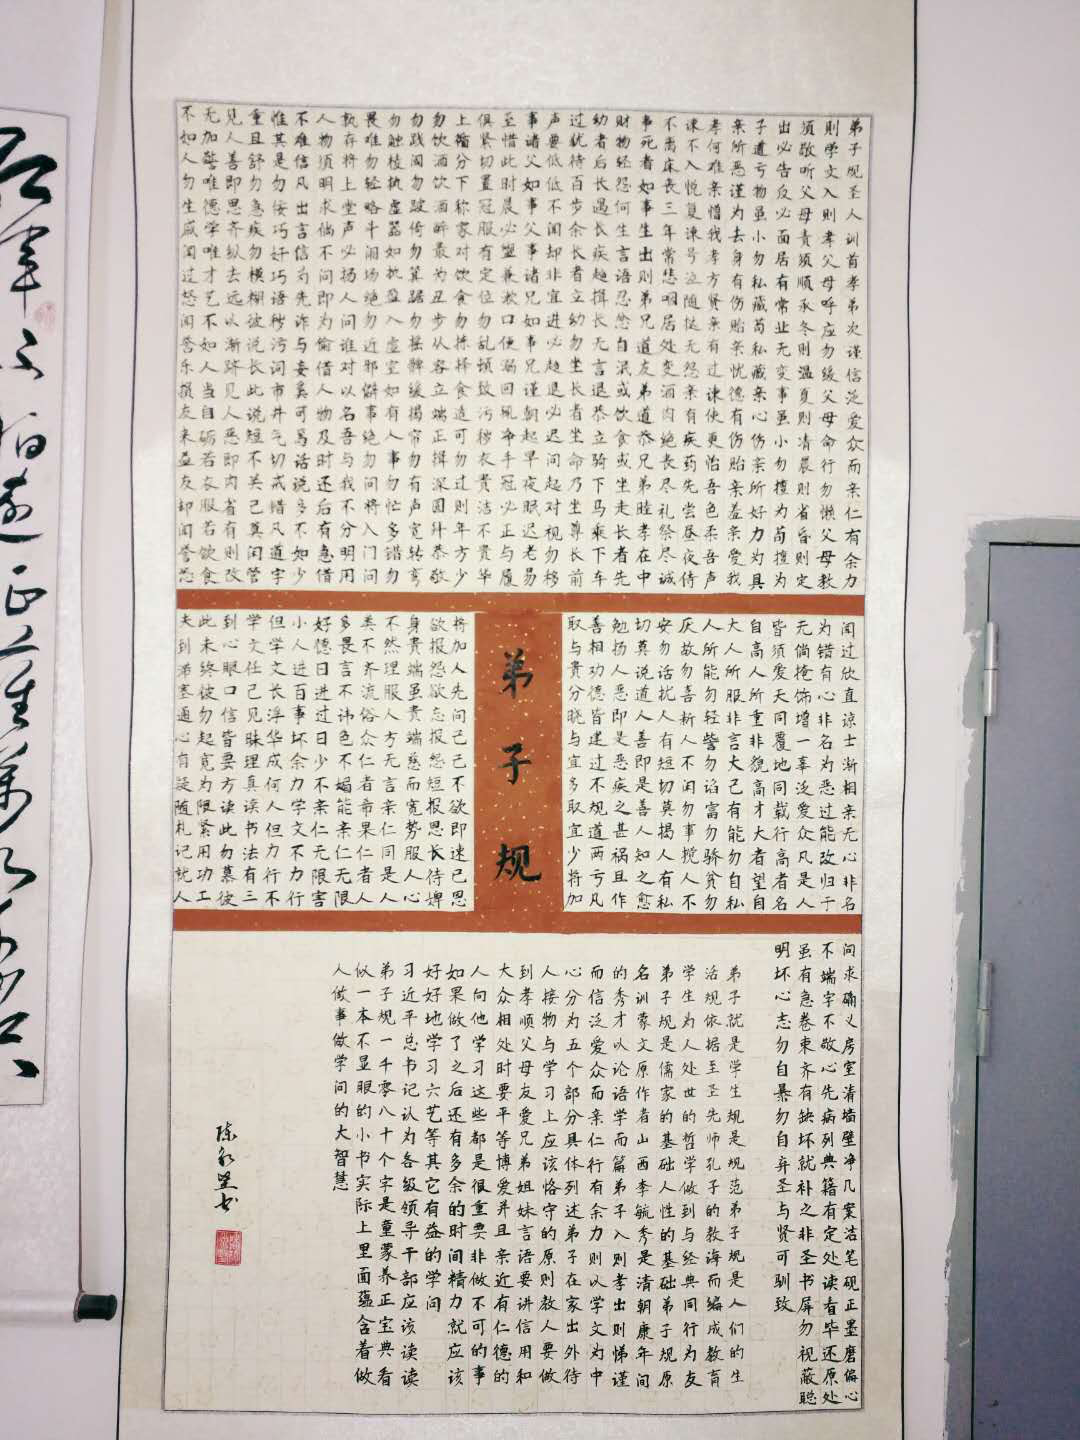 弟子规圣人训首孝弟次谨信泛爱众而亲仁有余力
则学文入则孝父母呼应勿缓父母命行勿懒父母教
须敬听父母责须顺承冬则温夏则凊晨则省昏则定
出必告反必面居有常业无变事虽小勿擅为苟擅为
子道亏物虽小勿私藏苟私藏亲心伤亲所好力为具
亲所恶谨为去身有伤贻亲忧德有伤贻亲羞亲爱我
孝何难亲憎我孝方贤亲有过谏使更怡吾色柔吾声
谏不入悦复谏号泣随挞无怨亲有疾药先尝昼夜侍
不离床丧三年常悲咽居处变酒肉绝丧尽礼祭尽诚
事死者如事生出则弟兄道友弟道恭兄弟睦孝在中
财物轻怨何生言语忍忿自泯或饮食或坐走长者先
幼者后长遇长疾趋揖长无言退恭立骑下马乘下车
过犹待百步余长者立幼勿坐长者坐命乃坐尊长前
声要低低不闻却非宜进必趋退必迟问起对视勿移
事诸父如事父事诸兄如事兄谨朝起早夜眠迟老易
至惜此时晨必盥兼漱口便溺回风净手冠必正与履
俱紧切置冠服有定位勿乱顿致污秽衣贵洁不贵华
上循分下称家对饮食勿拣择食适可勿过则年方少
勿饮酒饮酒醉最为丑步从容立端正揖深圆拜恭敬
勿践阈勿跛倚勿箕踞勿摇髀缓揭帘勿有声宽转弯
勿触棱执虚器如执盈入虚室如有人事勿忙多错勿
畏难勿轻略斗闹场绝勿近邪僻事绝勿问将入门问
孰存将上堂声必扬人问谁对以名吾与我不分明用
人物须明求倘不问即为偷借人物及时还后有急借
不难信凡出言信为先诈与妄奚可焉话说多不如少
惟其是勿佞巧奸巧语秽污词市井气切戒惜凡道字
重且舒勿急疾勿模糊彼说长此说短不关己莫闲管
见人善即思齐纵去远以渐跻见人恶即内省有则改
无加警唯德学唯才艺不如人当自砺若衣服若饮食
不如人勿生戚闻过怒闻誉乐损友来益友却闻誉恐
闻过欣直谅士渐相亲无心非名
为错有心非名为恶过能改归于
无倘掩饰增一辜泛爱众凡是人
皆须爱天同覆地同载行高者名
自高人所重非貌高才大者望自
大人所服非言大己有能勿自私
人所能勿轻訾勿谄富勿骄贫勿
厌故勿喜新人不闲勿事搅人不
安勿话扰人有短切莫揭人有私
切莫说道人善即是善人知之愈
勉扬人恶即是恶疾之甚祸且作
善相劝德皆建过不规道两亏凡
取与贵分晓与宜多取宜少将加
弟子规
将加人先问己己不欲即速已恩
欲报怨欲忘报怨短报恩长待婢
身贵端虽贵端慈而宽势服人心
不然理服人方无言亲仁同是人
类不齐流俗众仁者希果仁者人
多畏言不讳色不媚能亲仁无限
好德日进过日少不亲仁无限害
小人进百事坏余力学文不力行
但学文长浮华成何人但力行不
学文任己见昧理真读书法有三
到心眼口信皆要方读此勿慕彼
此未终彼勿起宽为限紧用功工
夫到滞塞通心有疑随札记就人
问求确义房室清墙壁净几案洁笔砚正墨磨偏心
不端字不敬心先病列典籍有定处读看毕还原处
虽有急卷束齐有缺坏就补之非圣书屏勿视蔽聪
明坏心志勿自暴勿自弃圣与贤可驯致
弟子就是学生规是规范弟子规是人们的生
活规依据至圣先师孔子的教诲而编成教育
学生为人处世的哲学做到与经典同行为友
弟子规是儒家的基础人性的基础弟子规原
名训蒙文原作者山西李毓秀是清朝康年间
的秀才以论语学而篇弟子入则孝出则悌谨
而信泛爱众而亲仁行有余力则以学文为中
心分为五个部分具体列述弟子在家出外待
人接物与学习上应该恪守的原则教人要做
到孝顺父母友爱兄弟姐妹言语要讲信用和
大众相处时要平等博爱并且亲近有仁德的
人向他学习这些都是很重要非做不可的事
如果做了之后还有多余的时间精力就应该
好好地学习六艺等其它有益的学问
习近平总书记认为各级领导干部应该读读
弟子规一千零八十个字是童蒙养正宝典看
似一本不显眼的小书实际上里面蕴含着做
人做事做学问的大智慧